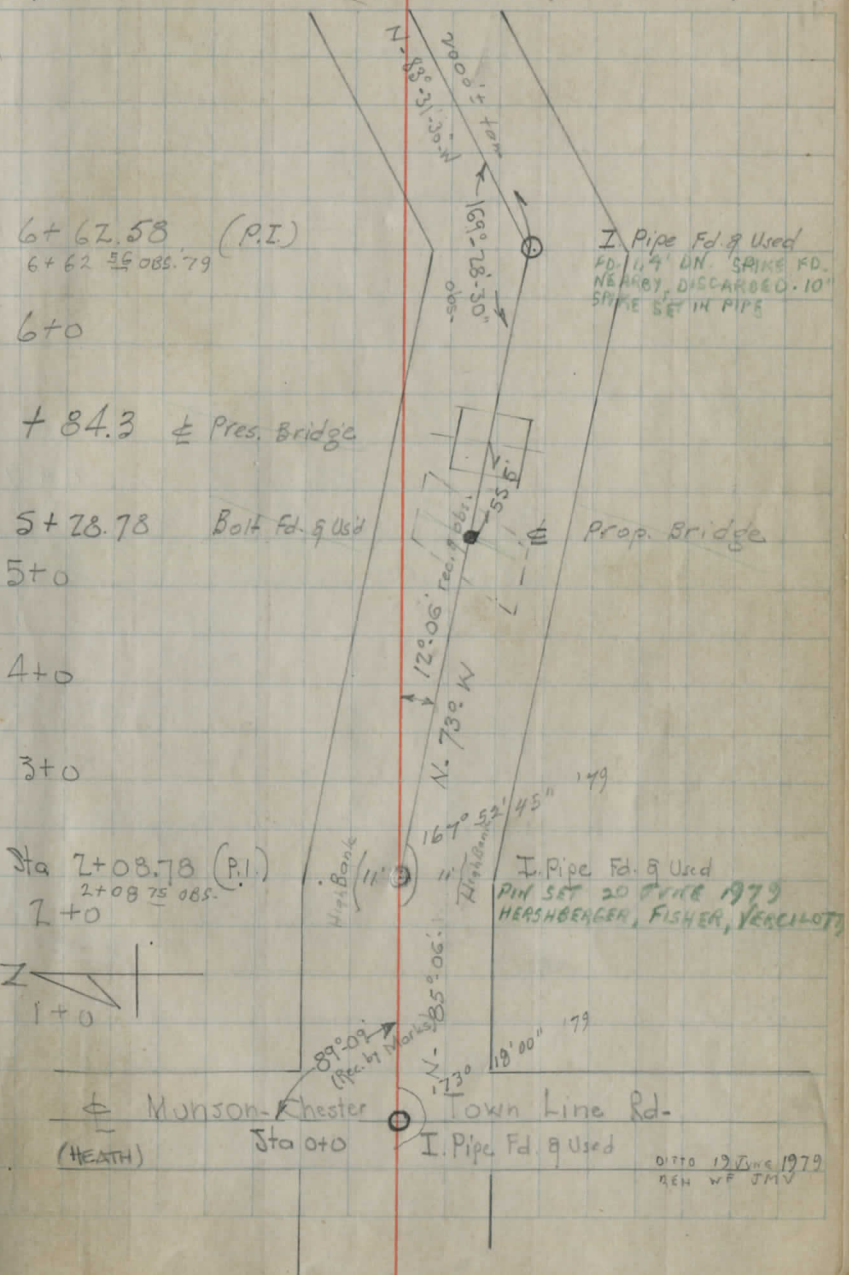 N- 83°-31'-30" W
2000' ± to
169°-28'-30"
obs-
6+ 62.58 (P.I.)
6+62 56 OBS. '79
I. Pipe Fd. & Used
FD. 1.4' DN. SPIKE FD.
NEARBY, DISCARDED. 10"
SPIKE SET IN PIPE
6+0
+ 84.3 ₵ Pres. Bridge
55.5'
5+28.78 Bolt Fd. & Us'd
₵ Prop. Bridge
5+0
12°-06' rec. & obs.
4+0
N- 73°- W
3+0
167° 52' 45" '79
Sta 2+08.78 (P.I.)
2+08 75 OBS.
High Bank
11'
11'
High Bank
I. Pipe Fd. & Used
PIN SET 20 JUNE 1979
HERSHBERGER, FISHER,
2+0
N- 85°-06'
Z
1+0
89°-09'
(Rec. by Marks)
73° 18' 00" '79
₵ Munson-Chester Town Line Rd-
(HEATH)
Sta 0+0
I. Pipe Fd. & Used
DITTO 19 JUNE 1979
WF JMV